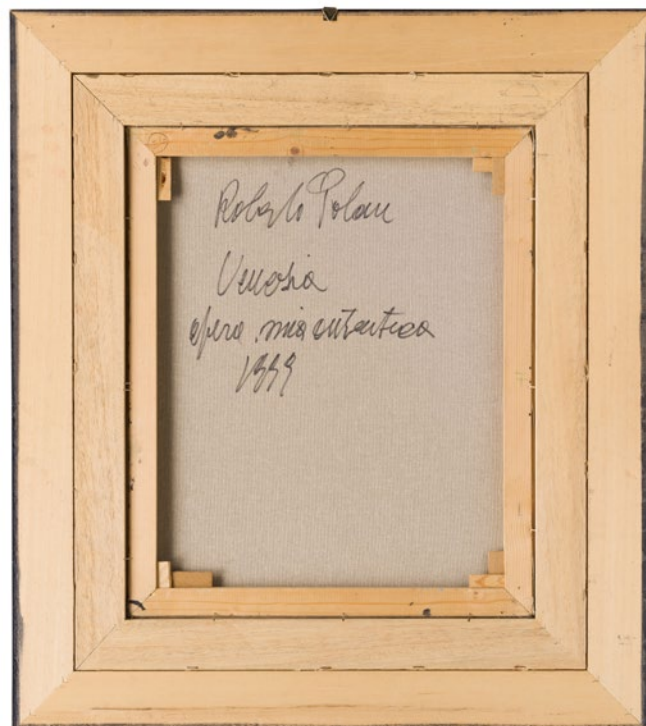 Roberto Polau
Venezia
opera mia autentica
1999